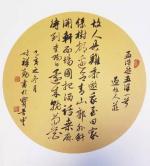 孟浩然五律一首
過故人莊
故人具雞黍邀我至田家
綠樹村邊合青山郭外斜
開軒面場圃把酒話桑麻
待到重陽日還來就菊花
己亥之冬月